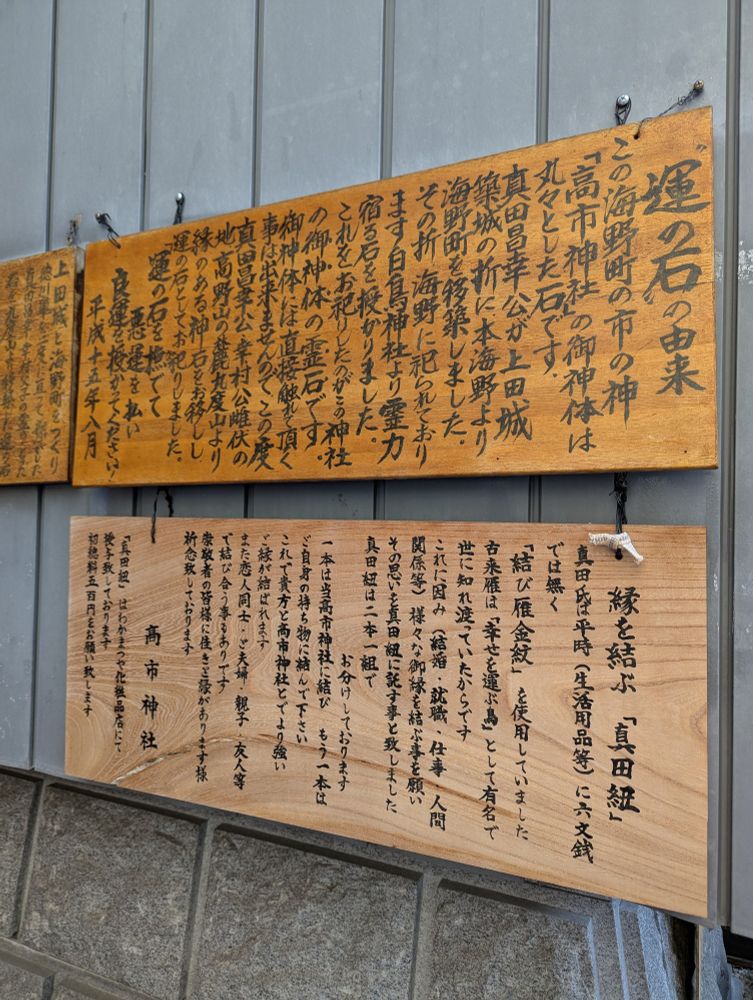 "運の石"の由来
この海野町の市の神
「高市神社」の御神体は
丸々とした石です。
真田昌幸公が上田城
築城の折に本海野より
海野町を移築しました。
その折、海野に祀られており
ます白鳥神社より霊力
宿る石を授かりました。
これをお祀りしたのがこの神社
の御神体の霊石です。
御神体には直接触れて頂く
事は出来ませんので、この度
真田昌幸公 幸村公雌伏の
地高野山の麓九度山より
縁のある神石をお移しし
運の石としてお祀りしました。
「運の石を撫でて
悪運を払い
良運を授かってください!
平成十五年八月
上田城と海野町をつくり
縁を結ぶ 「真田紐」
真田氏は平時（生活用品等）に六文銭
では無く
「結び雁金紋」を使用していました
古来雁は「幸せを運ぶ鳥」として有名で
世に知れ渡っていたからです
これに因み（結婚・就職・仕事・人間
関係等）様々な御縁を結ぶ事を願い
その思いを真田紐に託す事と致しました
真田紐は二本一組で
お分けしております
一本は当高市神社に結び もう一本は
ご自身の持ち物に結んで下さい
これで貴方と高市神社とでより強い
ご縁が結ばれます
また恋人同士・ご夫婦・親子・友人等
で結び合う事もありです
崇敬者の皆様に佳きご縁があります様
祈念致しております
高市神社
「真田紐」はわかまつや化粧品店にて
授与致しております
初穂料五百円をお願い致します